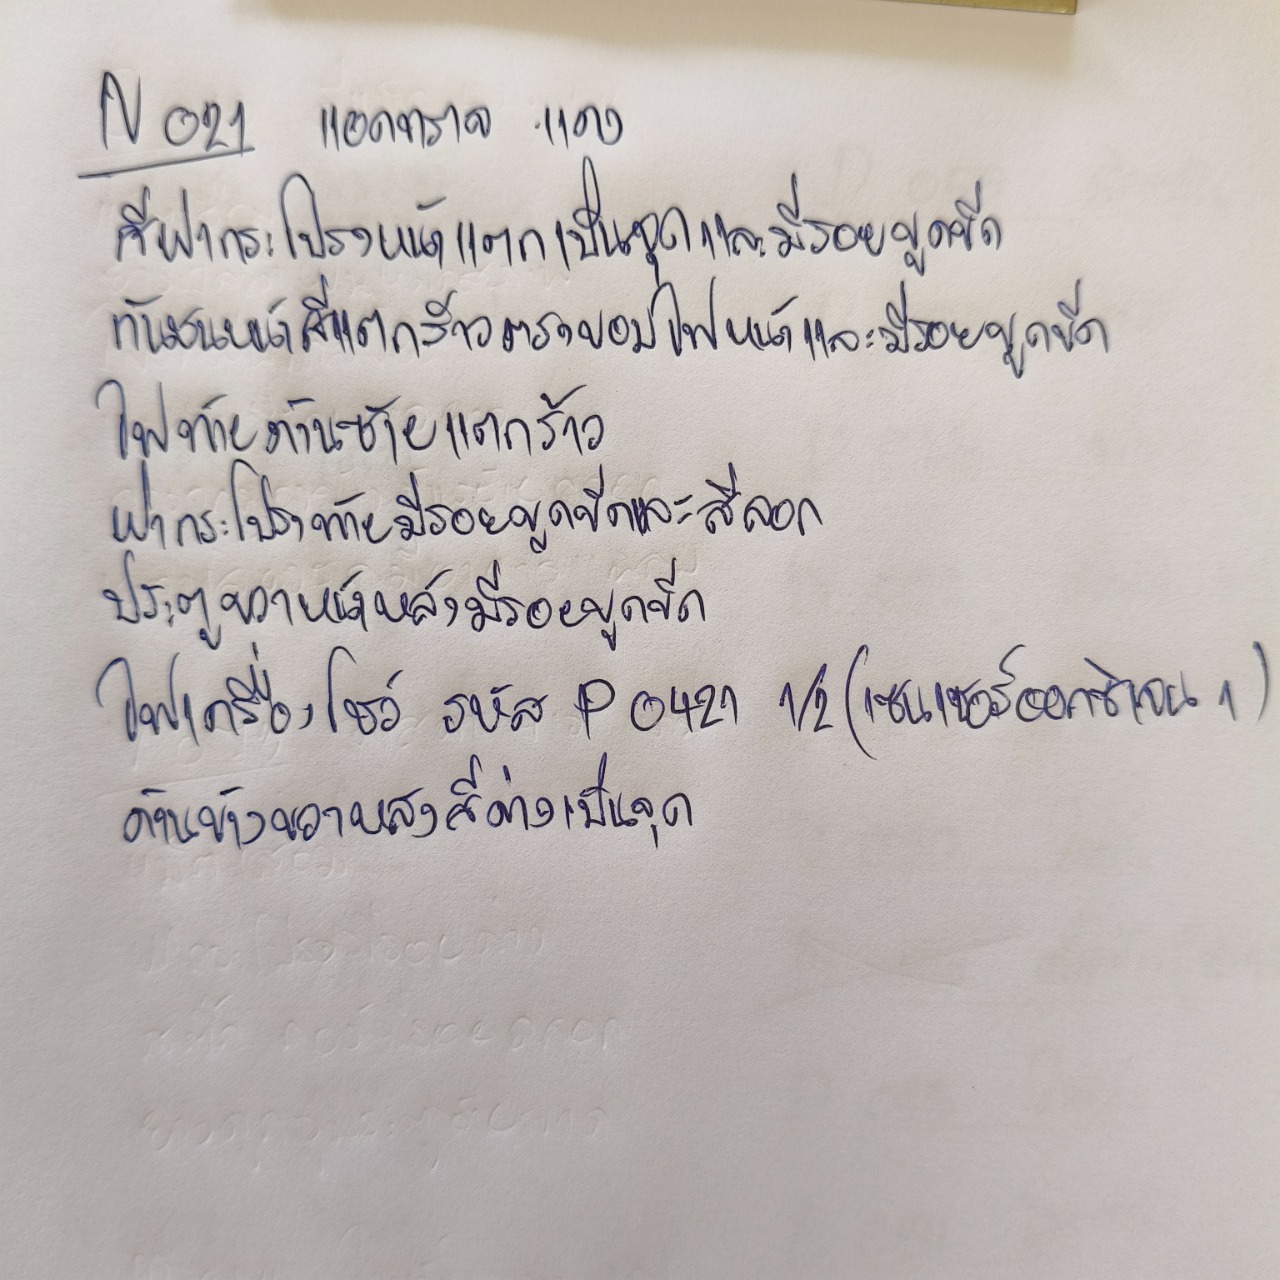 N 021 แอดทราจ แดง
สีฝากระโปรงหน้าแตกเป็นจุดและมีรอยขูดขีด
กันชนหน้าสีแตกร้าวตรงขอบไฟหน้าและมีรอยขูดขีด
ไฟท้ายด้านซ้ายแตกร้าว
ฝากระโปรงท้ายมีรอยขูดขีดและสีลอก
ประตูขวาหน้าหลังมีรอยขูดขีด
ไฟเครื่องโชว์ รหัส P 0421 1/2 (เซนเซอร์ออกซิเจน 1)
ด้านข้างขวาหลังสีด่างเป็นจุด